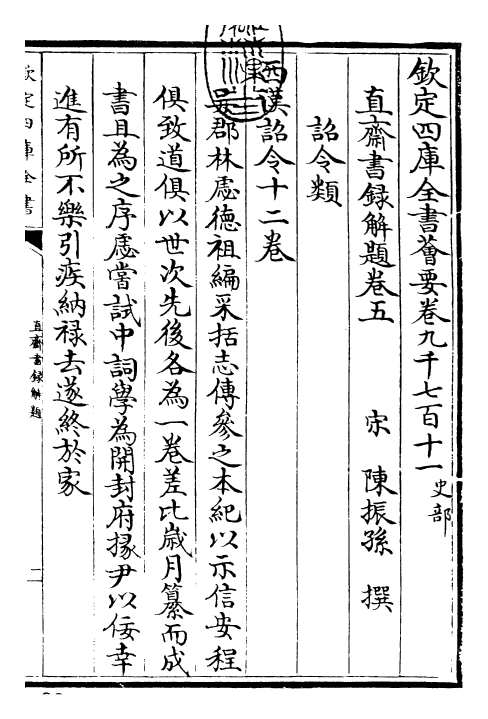 欽定四庫全書薈要卷九千七百十一史部
直齋書録解題卷五 宋 陳振孫 撰
詔令類
西漢詔令十二卷
吴郡林慮德祖編采括志傳參之本紀以示信安程
俱致道俱以世次先後各為一卷差比歲月纂而成
書且為之序慮嘗試中詞學為開封府掾尹以佞幸
進有所不樂引疾納禄去遂終於家
欽定四庫全書
直齋書録解題